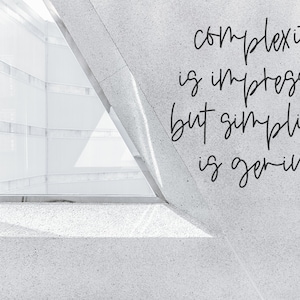 complexi
is impres
but simpli
is geniu